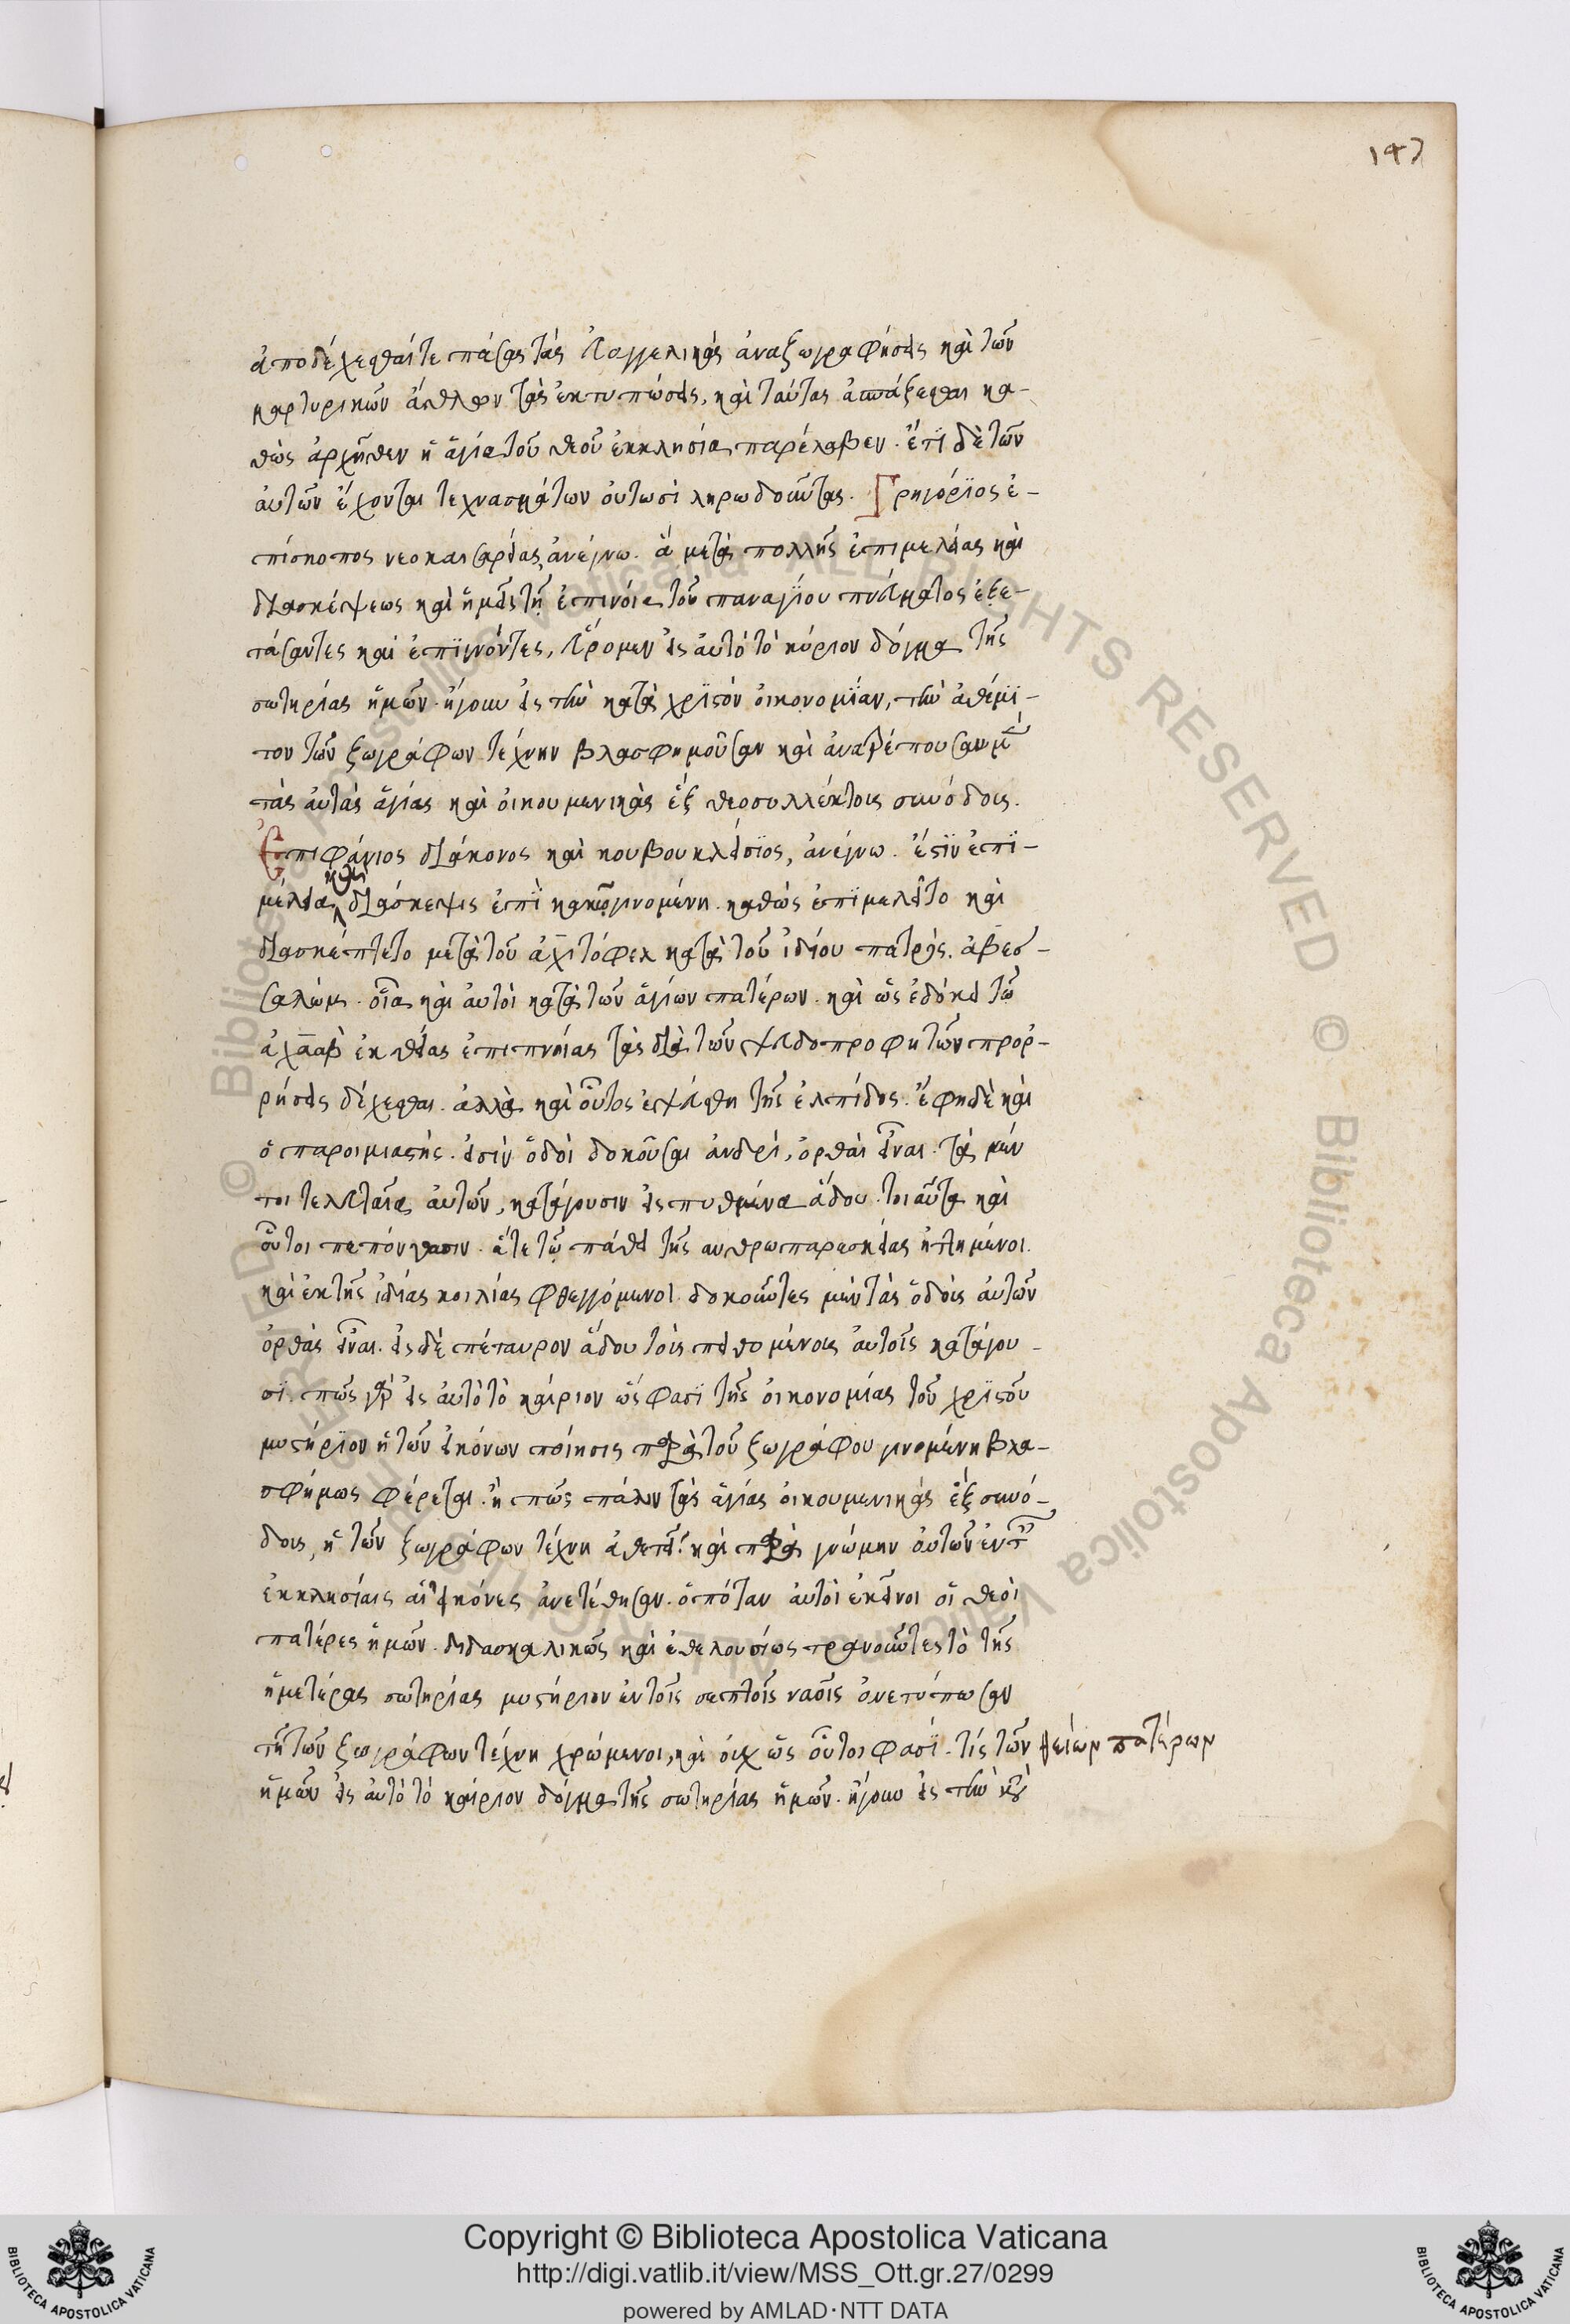 147
ἀποδέχεσθαί τε πάσας τὰς εὐαγγελικὰς ἀναζωγραφήσεις καὶ τῶν
μαρτυρικῶν ἄθλων τὰς ἐκτυπώσεις, καὶ ταύτας ἀσπάζεσθαι κα-
θὼς ἀρχῆθεν ἡ ἁγία τοῦ θεοῦ ἐκκλησία παρέλαβεν. ἔτϊ δὲ τῶν
αὐτῶν ἔχονται τεχνασμάτων οὑτωσὶ ληρωδοῦντες. Γρηγόρϊος ἐ-
πίσκοπος νεοκαισαρείας, ἀνέγνω. ἃ μετὰ πολλῆς ἐπιμελείας καὶ
διασκέψεως καὶ ἡμεῖς τῇ ἐπινοία τοῦ παναγίου πνεύματος ἐξε-
τάσαντες καὶ ἐπϊγνόντες, εὕρομεν εἰς αὐτὸ τὸ κύριον δόγμα τῆς
σωτηρίας ἡμῶν. ἤγουν εἰς τὴν κατὰ χρϊστὸν οἰκονομΐαν, τὴν ἀθέμϊ-
τον τῶν ζωγράφων τέχνην βλασφημοῦσαν καὶ ἀνατρέπουσαν
τὰς αὐτὰς ἁγίας καὶ οἰκουμενικὰς ἓξ θεοσυλλέκτοις συνόδοις.
Ἐπιφάνιος διάκονος καὶ κουβουκλείσϊος, ἀνέγνω. ἔστϊν ἐπϊ-
μέλεια καὶ διάσκεψις ἐπὶ κακῷ γινομένη. καθὼς ἐπϊμελεῖτο καὶ
διασκέπτετο μετὰ τοῦ ἀχϊτόφελ κατὰ τοῦ ἰδίου πατρὸς. ἀβεσ-
σαλὼμ. οἷα καὶ αὐτοὶ κατὰ τῶν ἁγίων πατέρων. καὶ ὡς ἐδόκει τῶ
ἀχαὰβ ἐκ θείας ἐπιπνοίας τὰς διὰ τῶν ψευδοπροφητῶν προρ-
ρήσεις δέχεσθαι. ἀλλὰ καὶ οὗτος ἐψεύσθη τῆς ἐλπίδος. ἔφη δὲ καὶ
ὁ παροιμιαστὴς. εἰσὶν ὁδοὶ δοκοῦσαι ἀνδρὶ, ὀρθαὶ εἶναι. τὰ μέν
τοι τελευταῖα αὐτῶν, κατάγουσιν εἰς πυθμένα ἅδου. τοιαῦτα καὶ
οὗτοι πεπόνθασιν. ἅτε τῷ πάθει τῆς ανθρωπαρεσκείας
καὶ ἐκ τῆς ἰδίας κοιλίας φθεγγόμενοι. δοκοῦντες μὲν τὰς ὁδοὺς αὐτῶν
ὀρθὰς εἶναι. εἰς δὲ πέταυρον ἅδου τοὺς πειθομένους αὐτοῖς κατάγου-
σϊ. πῶς γὰρ εἰς αὐτὸ τὸ καίριον ὥς φασϊ τῆς οἰκονομίας τοῦ χρϊστοῦ
μυστήρϊον ἡ τῶν εἰκόνων ποίησις παρὰ τοῦ ζωγράφου γινομένη βλα-
σφήμως φέρεται. ἢ πῶς πάλιν τὰς ἁγίας οἰκουμενικὰς ἓξ συνό-
δους, ἡ τῶν ζωγράφων τέχνη ἀθετεῖ· καὶ παρὰ γνώμην αὐτῶν ἐν τ
ἐκκλησίαις αἱ εἰκόνες ἀνετέθησαν. ὁπόταν αὐτοὶ ἐκεῖνοι οἱ θεῖοι
πατέρες ἡμῶν. διδασκαλικῶς καὶ ἐθελουσίως τρανοῦντες τὸ τῆς
ἡμετέρας σωτηρίας μυστήριον ἐν τοῖς σεπτοῖς ναοῖς ἀνετύπωσαν
τῇ τῶν ζωγράφων τέχνη χρώμενοι, καὶ οὐχ ὡς οὗτοι φασΐ. τίς τῶν θείων πατέρων
ἡμῶν εἰς αὐτὸ τὸ καίριον δόγμα τῆς σωτηρίας ἡμῶν. ἤγουν εἰς τὴν κατὰ
© Biblioteca Apostolica Vaticana ALL RIGHTS RESERVED
Copyright © Biblioteca Apostolica Vaticana
http://digi.vatlib.it/view/MSS_Ott.gr.27/0299
powered by AMLAD·NTT DATA
BIBLIOTECA APOSTOLICA VATICANA
BIBLIOTECA APOSTOLICA VATICANA